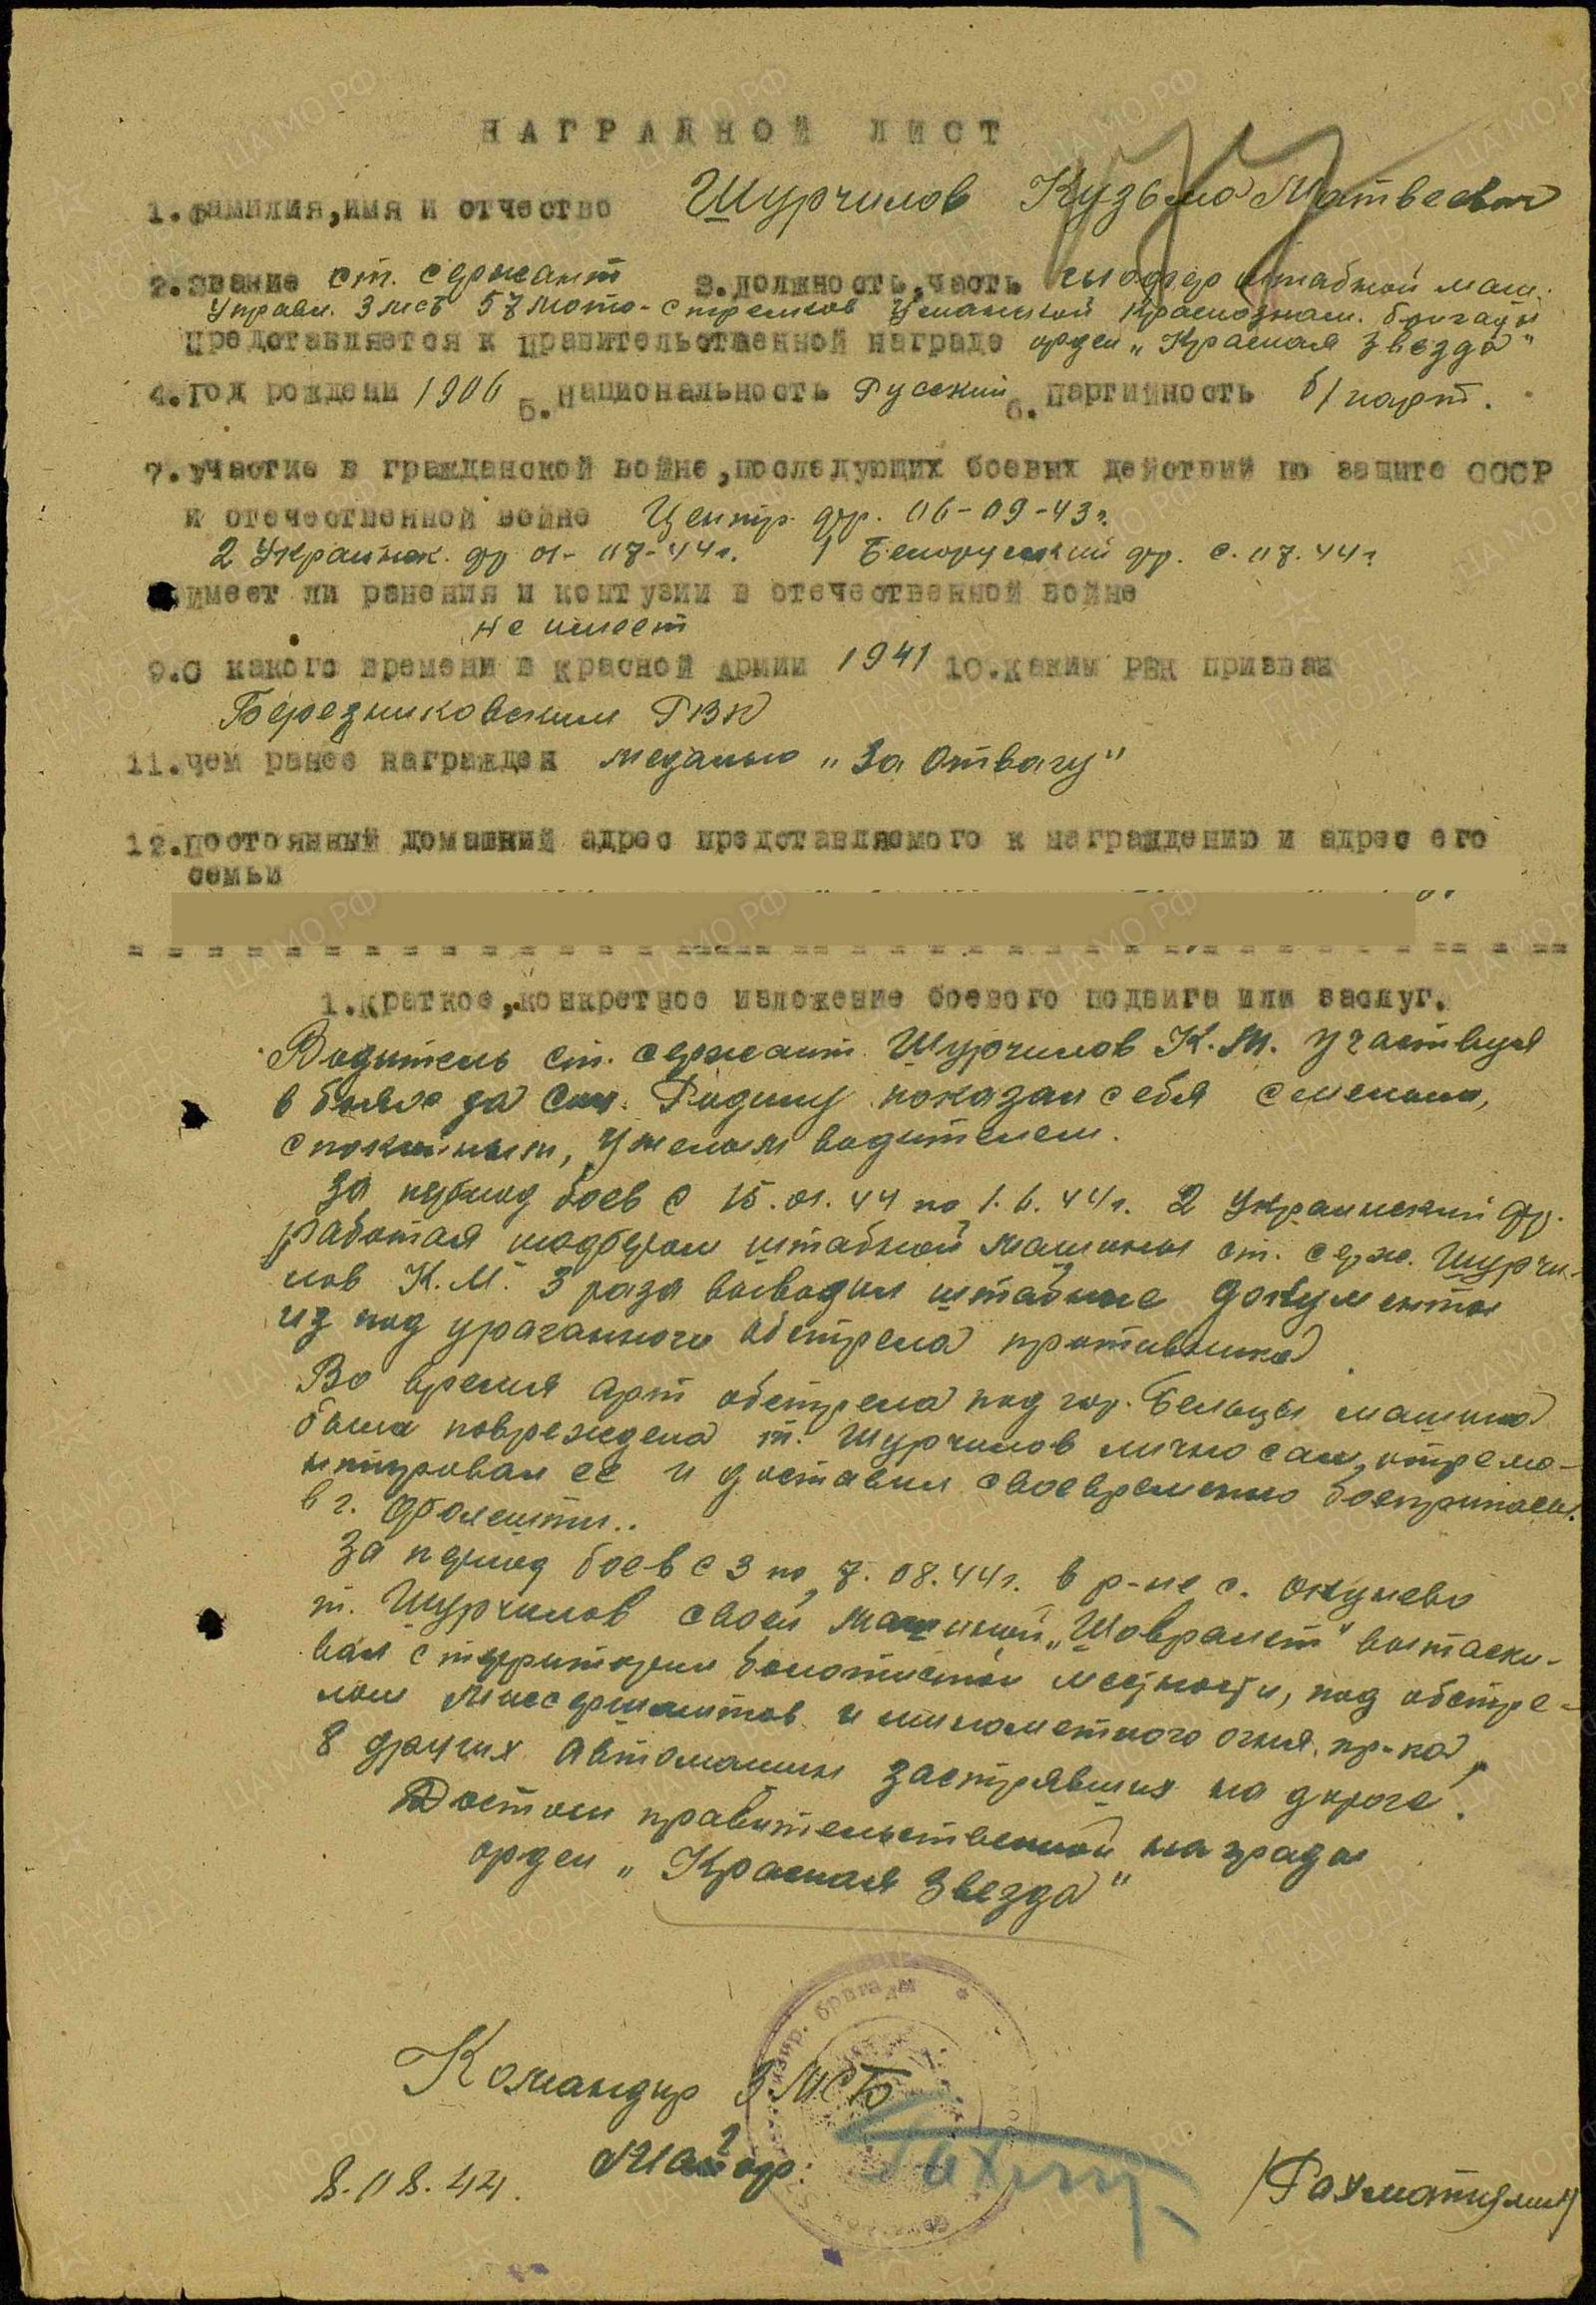 НАГРАДНОЙ ЛИСТ
1. Фамилия, имя и отчество Шурчилов Кузьма Матвеевич
2. Звание ст. сержант 3. должность, часть шофер штабной маш.
Управл. 3 мсб 57 мото-стрелков Уманской Краснознам. бригады
Представляется к правительственной награде орден „Красная Звезда"
4. Год рождени 1906 5. Национальность Русский 6. Партийность б/парт.
7. участие в гражданской войне, последующих боевых действий по защите СССР
и отечественной войне Центр. фр. 06-09-43г.
2 Украинск. фр 01-07-44г. 1 Белорусский фр. с. 07.44г
имеет ли ранения и контузии в отечественной войне
не имеет
9. С какого времени в Красной Армии 1941 10. Каким РВК призван
Березниковским РВК
11. чем ранее награжден медалью „За Отвагу"
12. постоянный домашний адрес представляемого к награждению и адрес его
семьи
1. Краткое, конкретное изложение боевого подвига или заслуг.
Водитель ст. сержант Шурчилов К.М. участвуя
в боях за Соц. Родину показал себя смелым,
спокойным, умелым водителем.
За период боев с 15.01.44 по 1.6.44г. 2 Украинский фр.
работая шофером штабной машины ст. серж. Шурчи-
лов К.М. 3 раза вывозил штабные документы
из под ураганного обстрела противника
Во время арт обстрела под гор. Бельцы машина
была повреждена т. Шурчилов лично сам отремо-
нтировал ее и доставил своевременно боеприпасы
в г. Фолешты..
За период боев с 3 по 7.08.44г. в р-не с. Окунево
т. Шурчилов своей машиной „Шовралет" вытаски-
вал с территории болотистой местности, под обстре-
лом Мессершмитов и минометного огня пр-ка,
8 других автомашин застрявших на дороге.
Достоин правительственной награды
орден „Красная Звезда"
Командир 3 МСБ
Майор
8.08.44. /Рахматулин/
бригады
ЦАМО РФ
ПАМЯТЬ НАРОДА